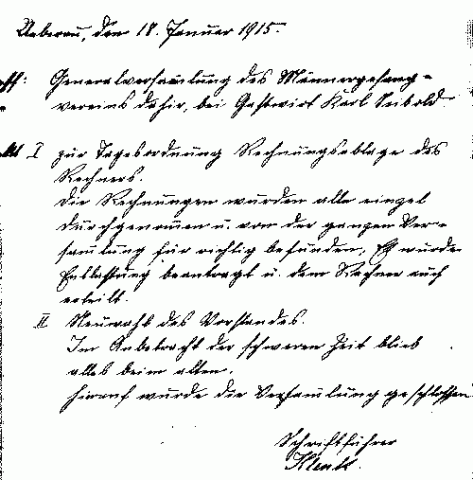 Ueberau, den 18. Januar 1915.
Generalversamlung des Männergesang-
vereins dahir, bei Gastwirt Karl Seibold
I zur Tagesordnung Rechnungsablage des
Rechners.
Die Rechnungen wurden alle einzel
durchgenomen u. von der ganzen Ver-
samlung für richtig befunden, Es wurde
Entlastung beantragt u. dem Rechner auch
erteilt.
II Neuwahl des Vorstandes.
Im Anbetracht der schweren Zeit blieb
alles beim alten.
Hirauf wurde die Versamlung geschlossen
Schriftführer